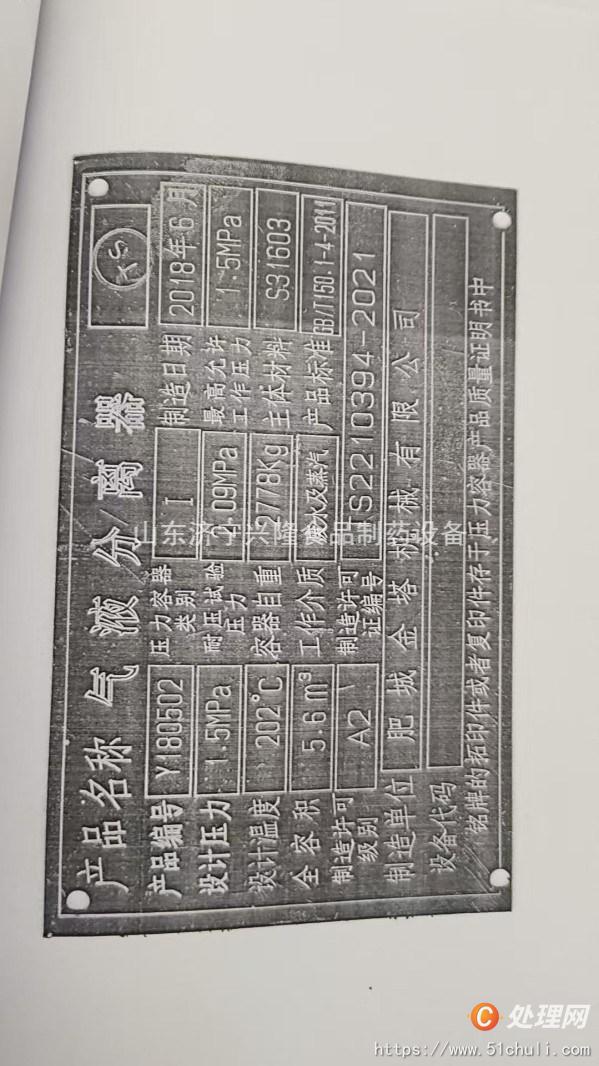 产品名称 气液分/离器
产品编号 Y180502 压力容器类别 I 制造日期 2018年6月
设计压力 1.5MPa 耐压试验压力 09MPa 最高允许工作压力 1.5MPa
设计温度 202°C 容器自重 778Kg 主体材料 S31603
全容积 5.6m³ 工作介质 水及蒸汽 产品标准 GB/T150.1-4-2011
制造许可级别 A2 制造许可证编号 TS2210394-2021
制造单位 肥城金塔机械有限公司
设备代码
铭牌的拓印件或者复印件存于压力容器产品质量证明书中
山东济宁兴隆食品制药设备
C 处理网
https://www.51chuli.com